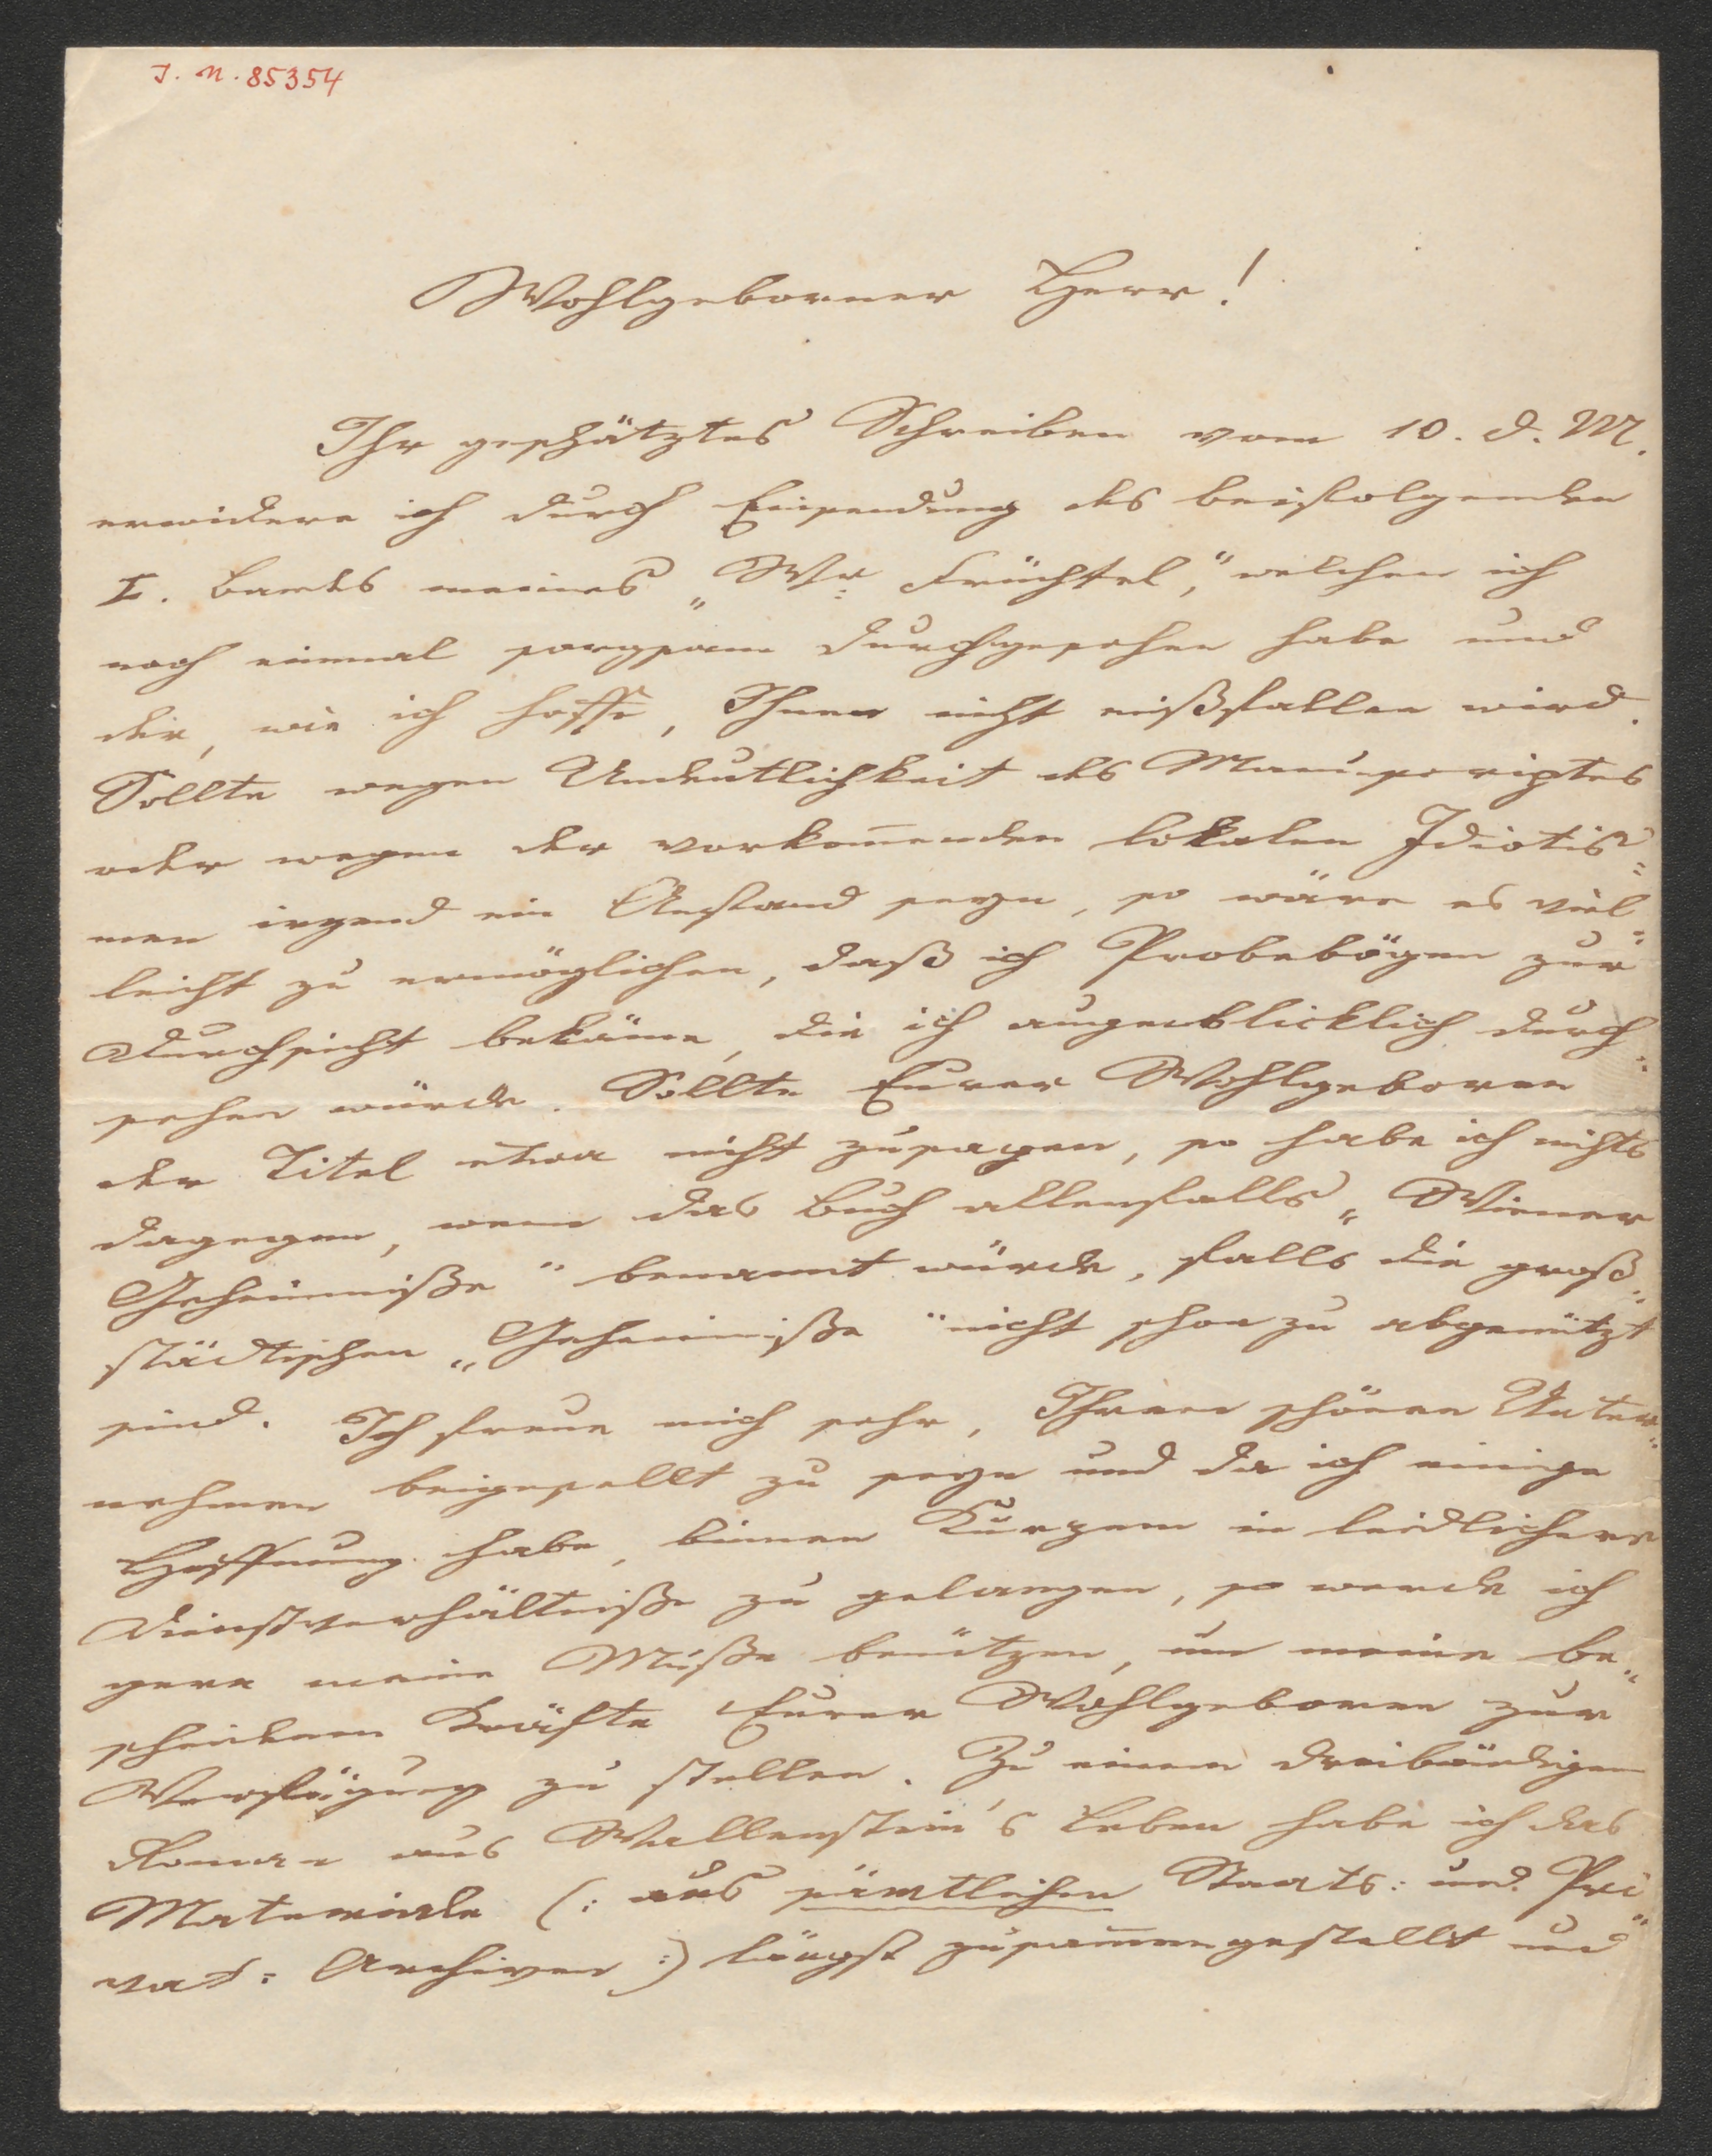 J. N. 85354
Wohlgeborner Herr!
Ihr geschätztes Schreiben vom 10. d. M.
erwidere ich durch Einsendung des beifolgenden
I. Bandes meines „Wr: Früchtel," welchen ich
noch einmal sorgsam durchgesehen habe und
der, wie ich hoffe, Ihnen nicht mißfallen wird.
Sollte wegen Undeutlichkeit des Manuscriptes
oder wegen der vorkom̅enden lokalen Idiotis=
men irgend ein Anstand seyn, so wäre es viel=
leicht zu ermöglichen, daß ich Probebögen zur
Durchsicht bekäme, die ich augenblicklich durch=
sehen würde. Sollte Eurer Wohlgeboren
der Titel etwa nicht zusagen, so habe ich nichts
dagegen, wenn das Buch allenfalls „Wiener
Geheimniße" benannt würde, falls die groß=
städtischen „Geheimniße" nicht schon zu abgenützt
sind. Ich freue mich sehr, Ihrem schönen Unter=
nehmen beigesellt zu seyn und da ich einige
Hoffnung habe, binnen Kurzem in leidlichere
Dienstverhältniße zu gelangen, so werde ich
gern meine Muße benützen, um meine be=
scheidenen Kräfte Eurer Wohlgeboren zur
Verfügung zu stellen. Zu einem dreibändigen
Roman aus Wallenstein's Leben habe ich das
Materiale (: aus sämtlichen Staats= und Pri=
vat= Archiven :) längst zusam̅engestellt und